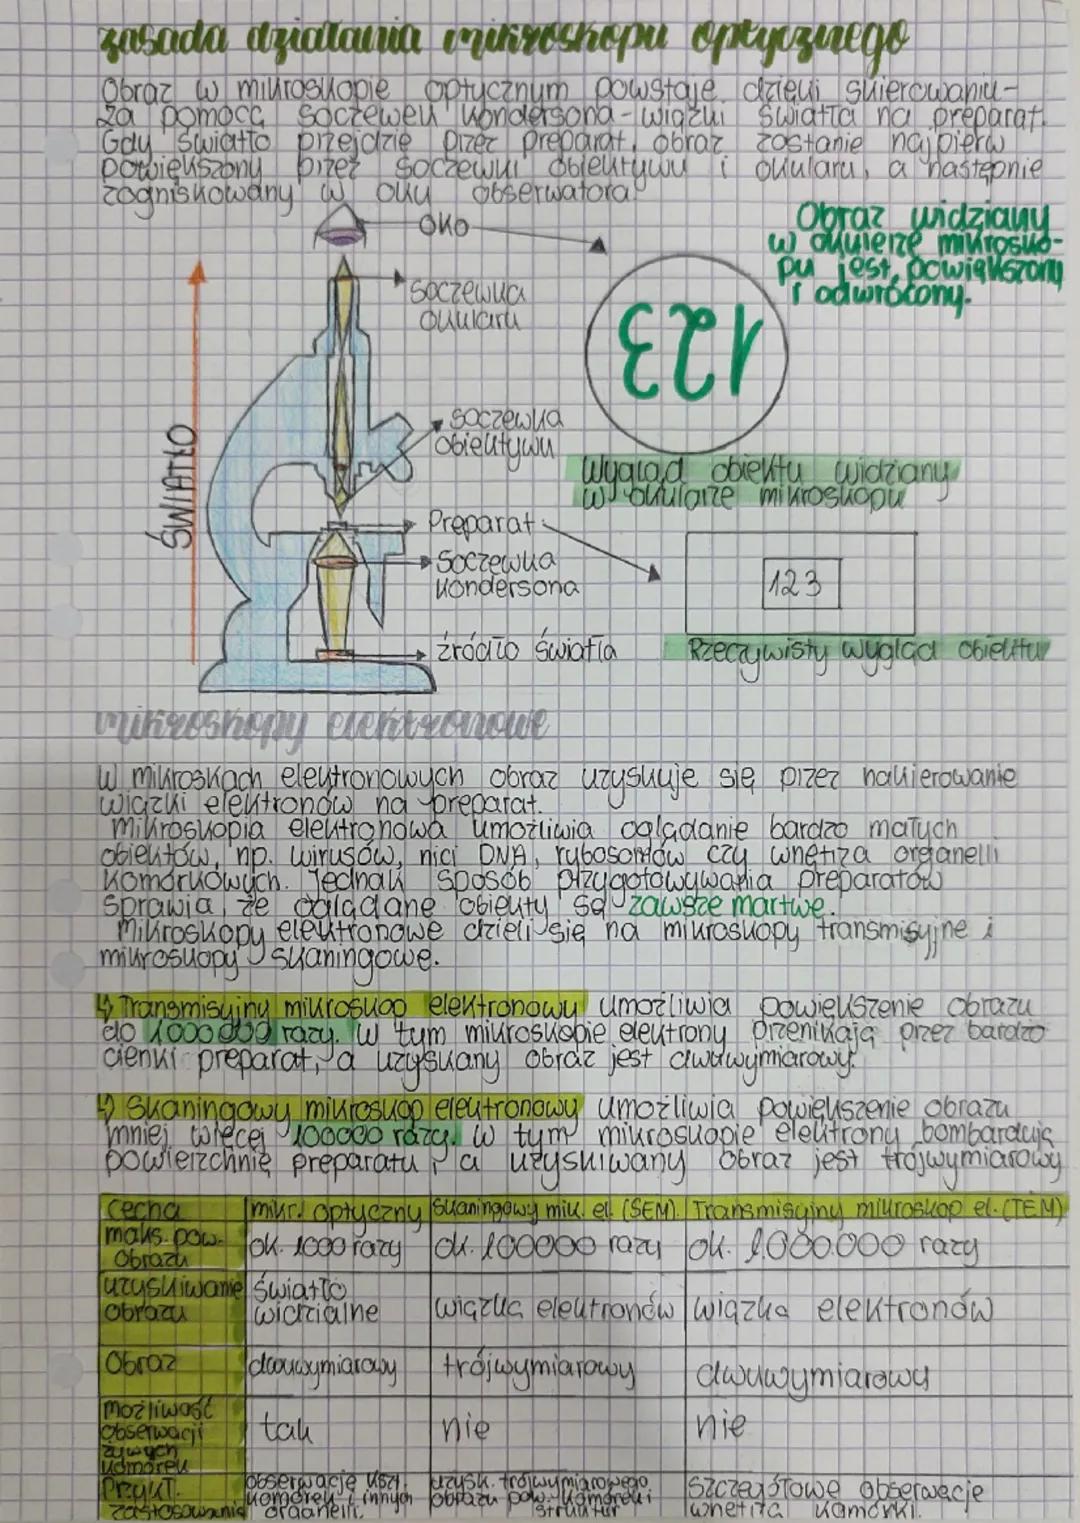 zasada działania mikroskopu optycznego
Obraz w mikroskopie optycznym powstaje dzięki skierowaniu-
za pomocą soczewek kondersona-wiązki światła na preparat.
Gdy światło przejdzie przez preparat, obraz zostanie najpierw
powiększony przez soczewki obiektywu i okularu, a następnie
zogniskowany w oku obserwatora.
Obraz widziany
w okularze mikrosko-
pu jest powiększony
i odwrócony.
OKO
soczewka
okularu
123
ŚWIATŁO
soczewka
obiektywu
Wygląd obiektu widziany
w okularze mikroskopu
Preparat
Soczewka
kondersona
123
źródło światła
Rzeczywisty wygląd obiektu
mikroskopy elektronowe
W mikroskach elektronowych obraz uzyskuje się przez nakierowanie
wiązki elektronów na preparat.
Mikroskopia elektronowa umożliwia oglądanie bardzo małych
obiektów, np. wirusów, nici DNA, rybosomów czy wnętrza organelli
komórkowych. Jednak sposób przygotowywania preparatów
sprawia, że oglądane obiekty są zawsze martwe.
Mikroskopy elektronowe dzieli się na mikroskopy transmisyjne i
mikroskopy skaningowe.
↳ Transmisyjny mikroskop elektronowy umożliwia powiększenie obrazu
do 1000000 razy. W tym mikroskopie elektrony przenikają przez bardzo
cienki preparat, a uzyskany obraz jest dwuwymiarowy.
↳ Skaningowy mikroskop elektronowy umożliwia powiększenie obrazu
mniej więcej 100000 razy. W tym mikroskopie elektrony bombardują
powierzchnię preparatu, a uzyskiwany obraz jest trójwymiarowy
cecha mikr. optyczny Skaningowy mik. el. (SEM). Transmisyjny mikroskop el. (TEM)
maks. pow. obrazu ok. 1000 razy ok. 100000 razy ok. 1.000.000 razy
uzyskiwanie obrazu światło widzialne wiązka elektronów wiązka elektronów
Obraz dwuwymiarowy trójwymiarowy dwuwymiarowy
możliwość obserwacji żywych komórek tak nie nie
Przykł. zastosowania obserwacje kszt. komórek i innych organelli. uzysk. trójwymiarowego obrazu pow. komórek i struktur szczegółowe obserwacje wnętrza komórki.